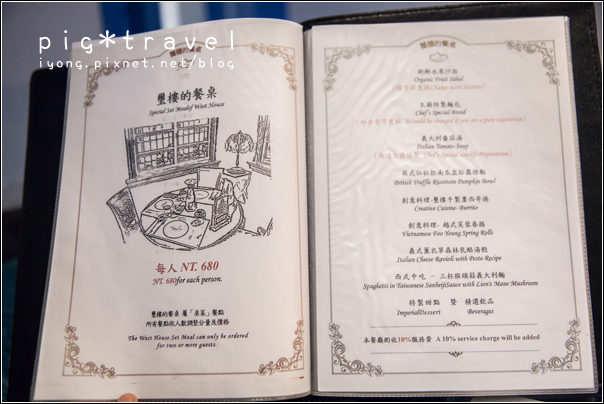 pig*travel
iyong.pixnet.net/blog
璽樓的餐桌
Special Set Mealof West House
每人 NT. 680
NT. 680for each person.
璽樓的餐桌 屬「桌菜」餐點
所有餐點依人數調整分量及價格
The West House Set Meal can only be ordered
for two or more guests.
璽樓的餐桌
新鮮水果沙拉
Organic Fruit Salad
主廚特製麵包
Chef's Special Bread
It could be changed if you are a pure vegetarian)
義大利蕃茄湯
Italian Tomato Soup
英式仙拉拉南瓜盅松露燉飯
British Truffle Risottoin Pumpkin Bowl
創意料理-璽樓手製墨西哥捲
Creative Cuisine- Burrito
創意料理- 越式芙蓉春捲
Vietnamese Foo Young Spring Rolls
義式薰衣草森林乳酪湯餃
Italian Cheese Ravioli with Pesto Recipe
西式中吃 - 三杯猴頭菇義大利麵
Spaghetti in Taiwanese SanbeijiSauce with Lion's Mane Mushroom
特製甜點 暨 精選飲品
ImperialDessert Beverages
本餐廳酌收10%服務費 A 10% service charge will be added